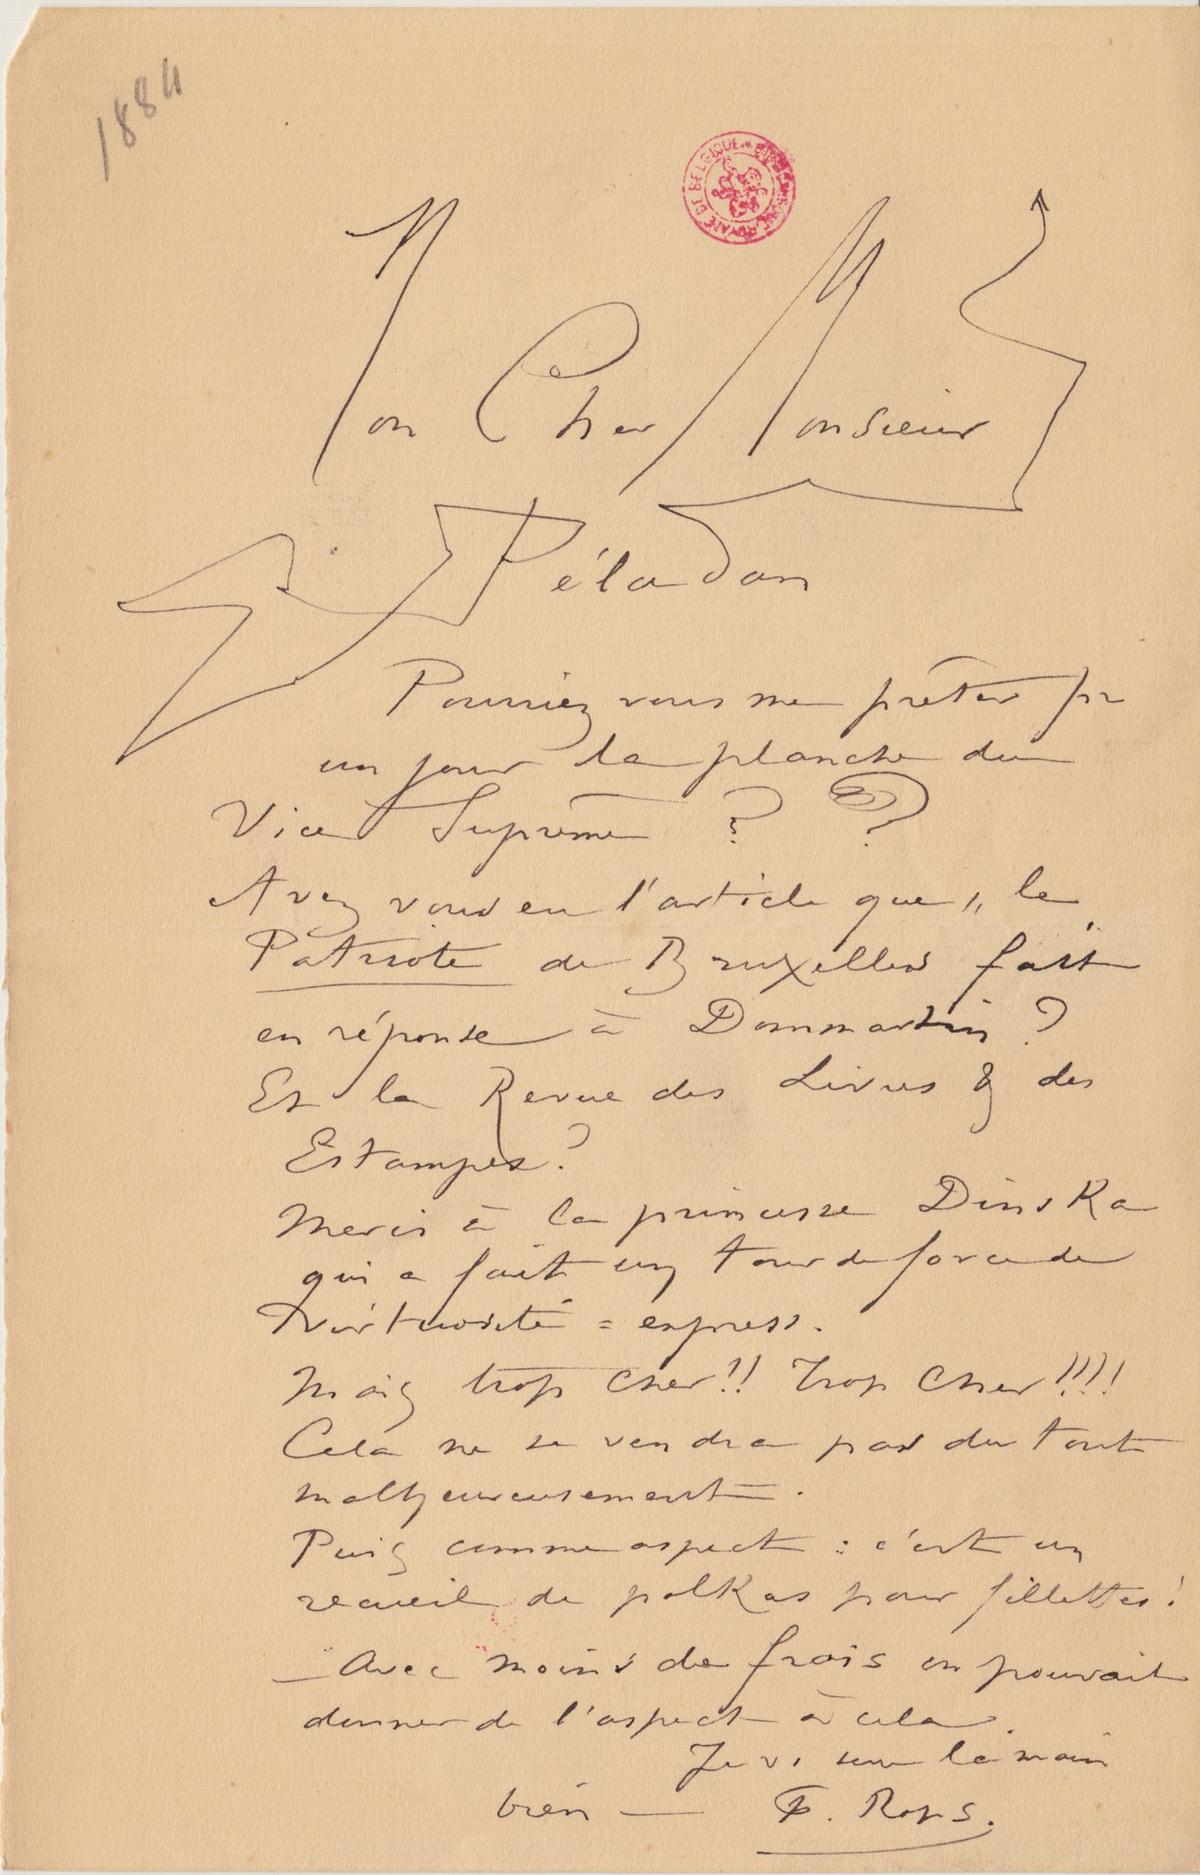 1884
BIBLIOTHÈQUE ROYALE DE BELGIQUE
Mon Cher Monsieur
Péladan
Pourriez vous me prêter pr
un jour la planche du
Vice Suprême ? ?
Avez vous eu l'article que „ le
Patriote de Bruxelles fait
en réponse à Dommartin ?
Et la Revue des Livres & des
Estampes ?
Merci à la princesse Dinska
qui a fait un tour de force de
virtuosité = express.
Mais trop cher !! Trop Cher !!!!
Cela ne se vendra pas du tout
malheureusement .
Puis comme aspect : c'est un
recueil de polkas pour fillettes !
— Avec moins de frais on pouvait
donner de l'aspect à cela .
Je vs serre la main
bien — F. Rops.